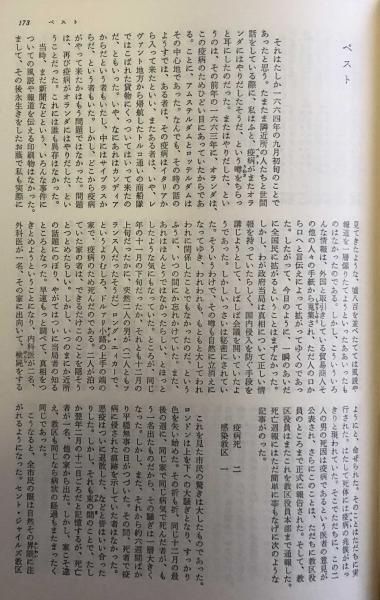 173 ペスト
ペスト
それはたしか一六六四年の九月初旬のことで
あったと思う。たまたま隣近所の人たちと世間
話をしている際に、私はふと、疫病がまたオラ
ンダにはやりだしたそうだ、という噂をちらっ
と耳にしたのだった。またはやりだした、とい
うのは、その前年の一六六三年に、オランダは、
この疫病のためひどい目にあっていたからであ
る。ことに、アムステルダムとロッテルダムは
その中心地であった。なんでも、その時の話の
ようすでは、ある者は、それはイタリアか
ら入って来たといい、またある者は、いや、レ
ヴァント地方から帰航したトルコ通いの商船隊
ではこばれた貨物にくっついて入って来たの
だ、ともいった。いや、なにあれはカンディア
からだという者もいたし、中にはサイプラスか
らだ、という者もいた。しかし、どこから疫病
がやって来たかはもう問題ではなかった。問題
は、再び疫病がオランダにはやりだしたとい
うことだった。これには誰にも異存はなかった。
当時、まだ新聞などという、出来事に
ついての風説や報道を伝える印刷物はなかった。
まして、その後永生きをしたお蔭で私も実際に
見てきたような、嘘八百を並べたてては風説や
報道を一層煽りたてようといったあれいったも
のはなかったのである。しかし、こ
んな情報は、外国と取引をしていた貿易商人
の他の人々の手紙から蒐集され、ただ人の口か
ら口へと言伝えによって拡がってゆくのであっ
た。したがって、今日のように、一瞬のあいだ
に全国民に拡がるということはまずなかった。
しかし、わが政府当局は真相について正しい情
報を持っていたらしく、国内侵入を防ぐ手段を
講じようとして、しばしば会議を開いていたよ
うだった。もっともいっさいは秘密にされてい
た。そういうわけで、その噂も自然に立消えに
なってゆき、われわれも、もともと大してわれ
われに関係したことでもなかったのだ、という
ふうに、いつの間にか忘れかけていた。また、
あれはほんとうではなかったらしい、とほっと
したような気にもなっていた。ところが、同じ
年の十一月の下旬だったか、それとも十二月の
上旬だったかに、突然二人の男が(二人ともフ
ランス人だったそうだ)ロング・エイカーで、
というよりむしろ、ドルアリ小路の上手の端の
家で、疫病のため死んだのである。二人が泊っ
ていた家の者は、できるだけこのことを隠そう
とつとめたらしい。しかし、いつのまにか近所
の話題にのぼり、それがついに当局者の知る
ところとなった。早速もっと調査し、真相をつ
きとめようということになり、内科医が二名、
外科医が一名、その家に出向いて、検屍をする
ようにと、命ぜられた。そのことはただちに実
行された。はたして死体には疫病の兆候がはっ
きり見られた。そこでこの二人
の男の死因は疫病であるという医者の意見が
公表され、さらにこのことは、ただちに教区役
員のところまで正式に報告された。そして、教
区役員はまたこれを教区役員本部まで通報した。
死亡週報にはただ簡単に事もなげに次のような
記事がのった。
疫病死 二
感染教区 一
これを見た市民の驚きは大したものであった。
ロンドンは上を下への大騒ぎとなり、すっかり
色を失い始めた。その折も折、同じ十二月の最
後の週に、同じ家で、同じ病気で死んだ者が、も
う一名出たものだから、その騒ぎは一層大きく
なった。しかし、また、それから約六週間ばか
り無事がつづき、その間、死者で疫
病に侵された痕跡を示していた者はなかったので、
悪疫はついに退散した、などと皆はいい合った
りした。しかし、それも束の間のことで、たし
か翌年二月の十二日ごろだと記憶するが、死亡
者が一名、他の家から出た。しかし、家こそ違
え、教区も同じなら病状の経過もまったく
同じだった。
こうなると、全市民の眼は自然その界隈に注
がれるようになった。セント・ジャイルズ教区